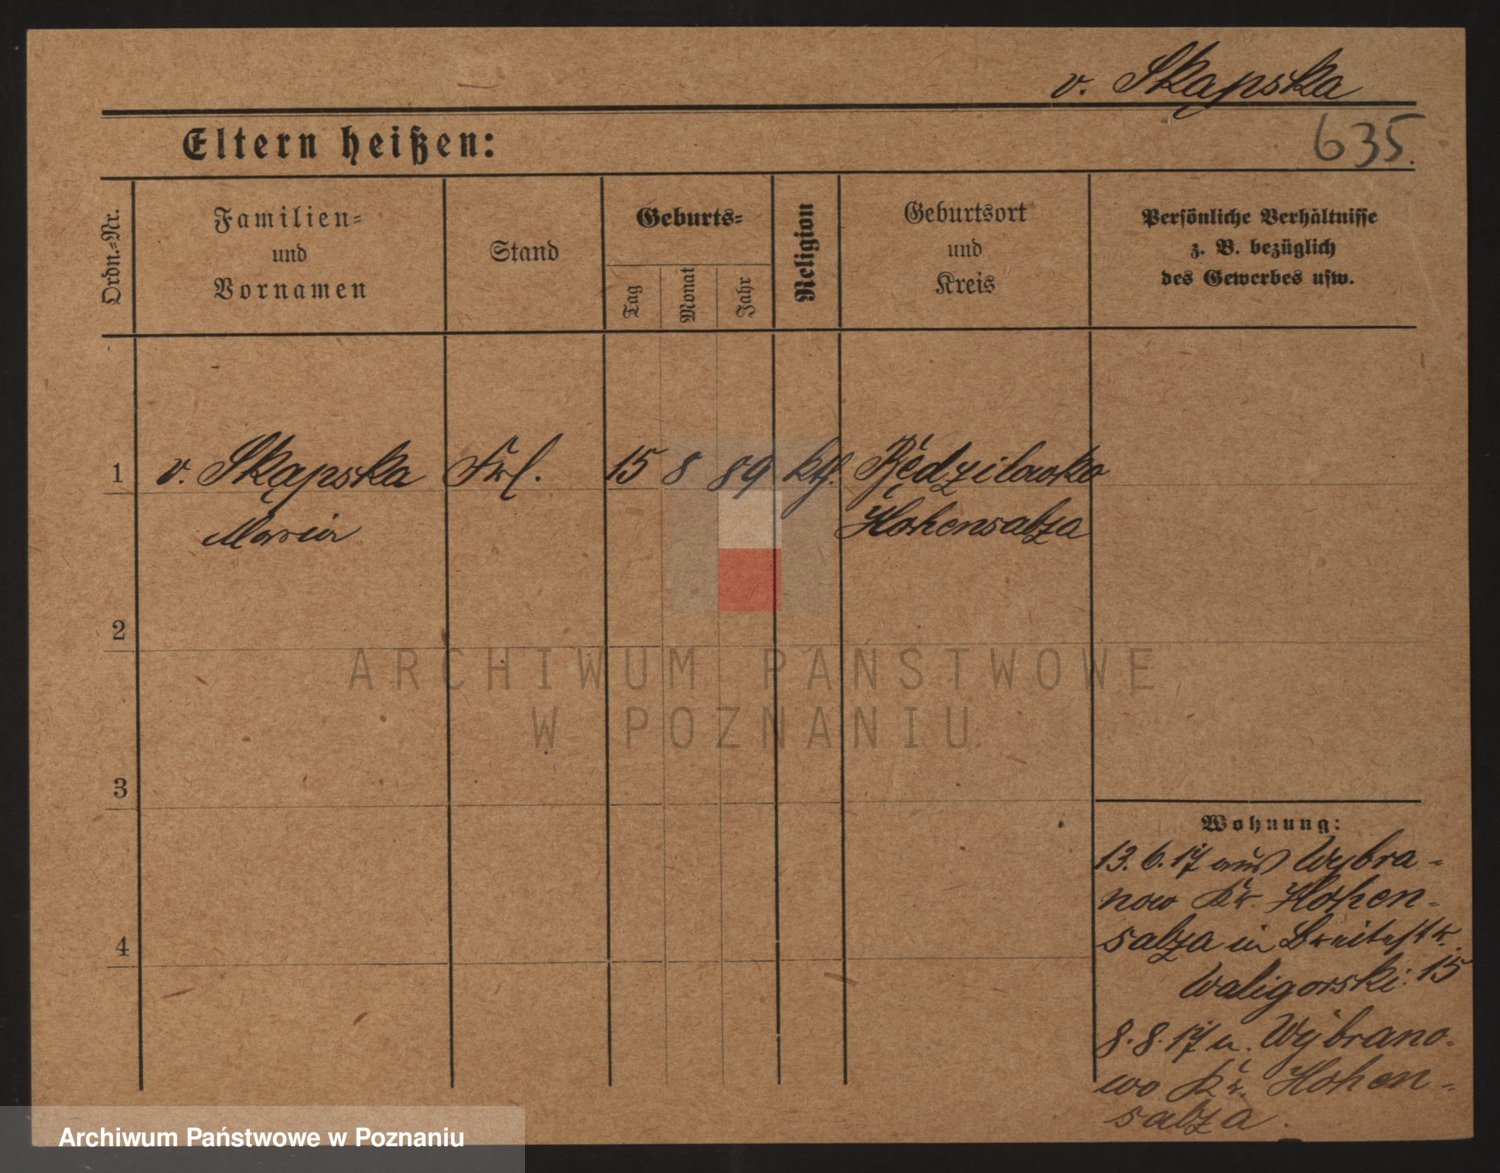 v. Skąpska
635.
Eltern heißen:
Ordn.=Nr.
Familien=
und
Vornamen
Stand
Geburts=
Tag
Monat
Jahr
Religion
Geburtsort
und
Kreis
Persönliche Verhältnisse
z. B. bezüglich
des Gewerbes usw.
1 v. Skąpska Frl. 15 8 89 kth.
Maria
Hohensalza
2
3
4
Wohnung:
13. 6. 17 aus Wybra-
now Kr. Hohen-
salza in Breitestr.
Waligorski 15
8. 8. 17 n. Wybrano-
wo Kr. Hohen-
salza.
ARCHIWUM PAŃSTWOWE
W POZNANIU
Archiwum Państwowe w Poznaniu